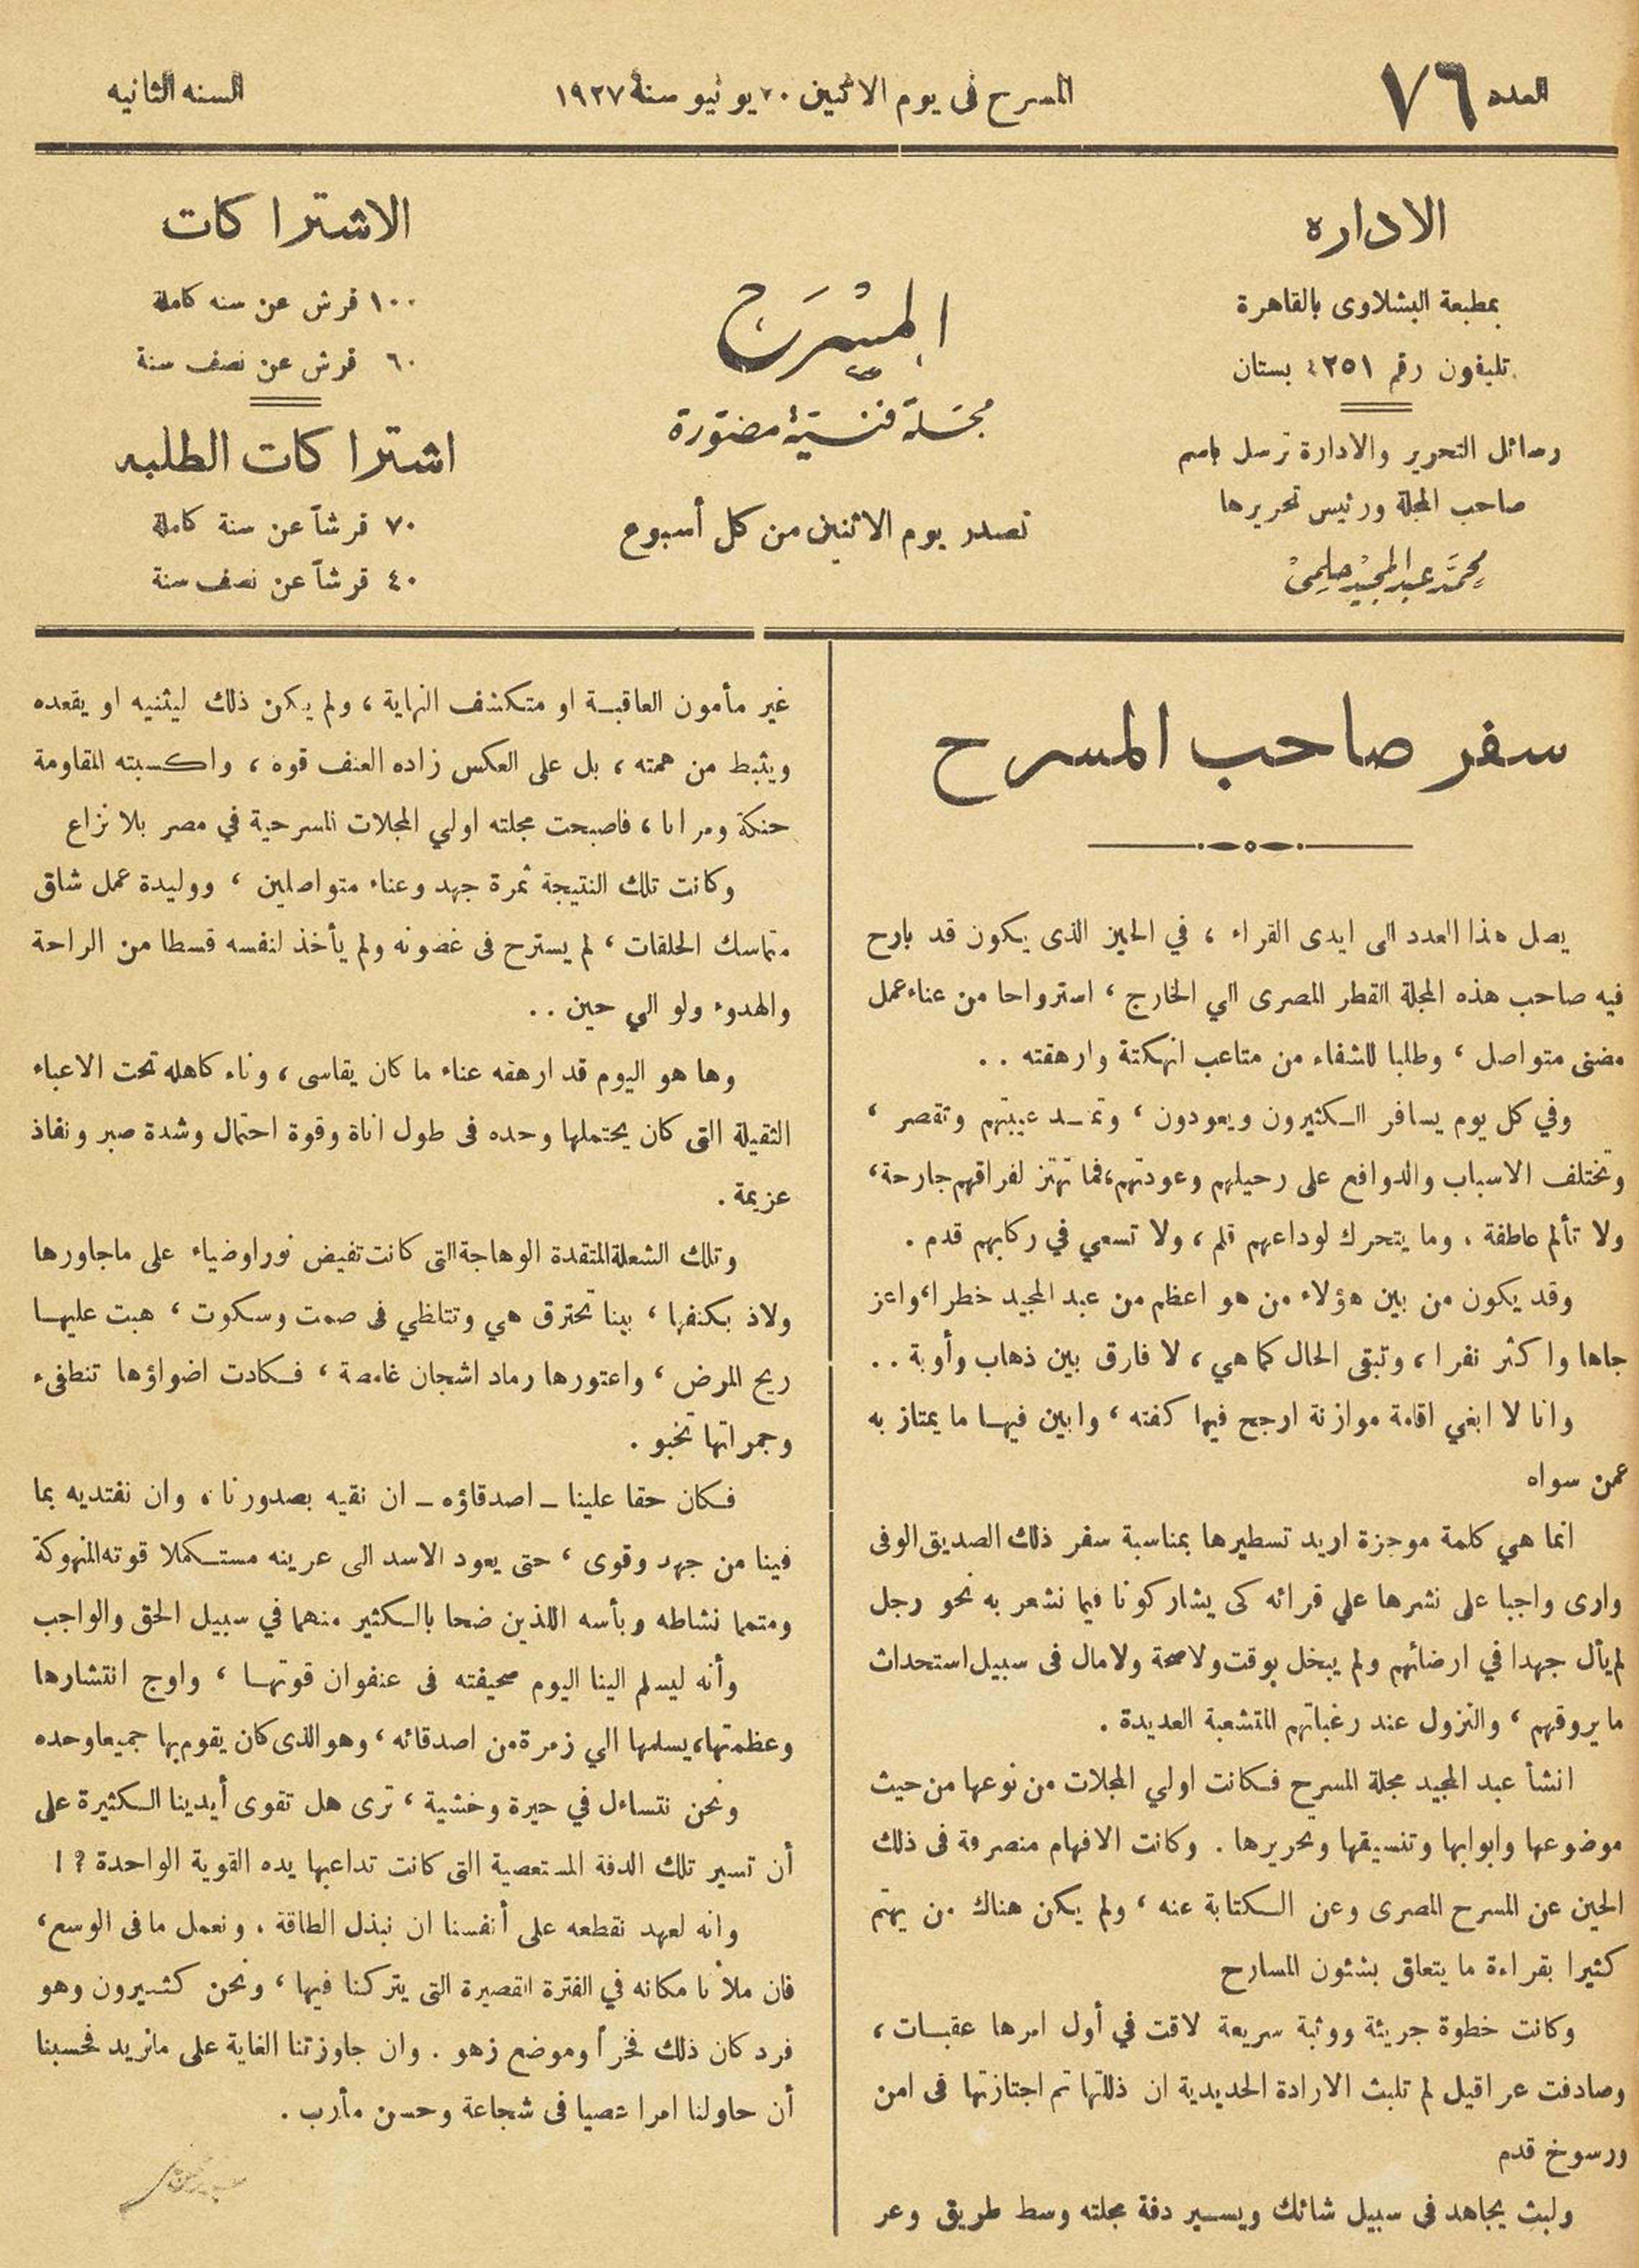 العدد ٧٦
المسرح فى يوم الاثنين ٢٠ يونيو سنة ١٩٢٧
السنه الثانيه
الاداره
بمطبعة البشلاوى بالقاهرة
تليفون رقم ٤٢٥١ بستان
رسائل التحرير والادارة ترسل باسم
صاحب المجلة ورئيس تحريرها
محمد عبد المجيد حلمى
المسرح
مجلة فنية مصورة
تصدر يوم الاثنين من كل أسبوع
الاشتراكات
١٠٠ قرش عن سنه كاملة
٦٠ قرش عن نصف سنة
اشتراكات الطلبه
٧٠ قرشاً عن سنة كاملة
٤٠ قرشاً عن نصف سنة
سفر صاحب المسرح
يصل هذا العدد الى ايدى القراء ، في الحين الذى يكون قد بارح
فيه صاحب هذه المجلة القطر المصرى الي الخارج ، استرواحا من عناء عمل
مضنى متواصل ، وطلبا للشفاء من متاعب انهكتة وارهقته . .
وفي كل يوم يسافر الكثيرون ويعودون ، وتمتد غيبتهم وتقصر ،
وتختلف الاسباب والدوافع على رحيلهم وعودتهم، فما تهتز لفراقهم جارحة ،
ولا تألم عاطفة ، وما يتحرك لوداعهم قلم ، ولا تسعي في ركابهم قدم .
وقد يكون من بين هؤلاء من هو اعظم من عبد المجيد خطرا ، واعز
جاها واكثر نفرا ، وتبقى الحال كما هي ، لا فارق بين ذهاب وأوبة . .
وانا لا ابغي اقامة موازنة ارجح فيها كفته ، وابين فيها ما يمتاز به
عمن سواه
انما هي كلمة موجزة اريد تسطيرها بمناسبة سفر ذلك الصديق الوفى
وارى واجبا على نشرها علي قرائه كى يشاركونا فيما نشعر به نحو رجل
لم يأل جهدا في ارضائهم ولم يبخل بوقت ولا صحة ولا مال فى سبيل استحداث
ما يروقهم ، والنزول عند رغباتهم المتشعبة العديدة .
انشأ عبد المجيد مجلة المسرح فكانت اولي المجلات من نوعها من حيث
موضوعها وابوابها وتنسيقها وتحريرها . وكانت الافهام منصرفة فى ذلك
الحين عن المسرح المصرى وعن الكتابة عنه ، ولم يكن هناك من يهتم
كثيرا بقراءة ما يتعلق بشئون المسارح
وكانت خطوة جريئة ووثبة سريعة لاقت في أول امرها عقبات ،
وصادفت عراقيل لم تلبث الارادة الحديدية ان ذللتها ثم اجتازتها فى امن
ورسوخ قدم
ولبث يجاهد فى سبيل شائك ويسير دفة مجلته وسط طريق وعر
غير مأمون العاقبة او متكشف النهاية ، ولم يكن ذلك ليثنيه او يقعده
ويثبط من همته ، بل على العكس زاده العنف قوه ، واكسبته المقاومة
حنكة ومرانا ، فاصبحت مجلته اولي المجلات المسرحية في مصر بلا نزاع
وكانت تلك النتيجة ثمرة جهد وعناء متواصلين ، ووليدة عمل شاق
متماسك الحلقات ، لم يسترح فى غضونه ولم يأخذ لنفسه قسطا من الراحة
والهدوء ولو الي حين . .
وها هو اليوم قد ارهقه عناء ما كان يقاسى ، وناء كاهله تحت الاعباء
الثقيلة التى كان يحتملها وحده فى طول اناة وقوة احتمال وشدة صبر ونفاذ
عزيمة .
وتلك الشعلة المتقدة الوهاجة التى كانت تفيض نورا وضياء على ما جاورها
ولاذ بكنفها ، بينا تحترق هي وتتلظي فى صمت وسكوت ، هبت عليها
ريح المرض ، واعتورها رماد اشجان غامضة ، فكادت اضواؤها تنطفىء
وجمراتها تخبو .
فكان حقا علينا ــ اصدقاؤه ــ ان نقيه بصدورنا ، وان نفتديه بما
فينا من جهد وقوى ، حتى يعود الاسد الى عرينه مستكملا قوته المنهوكة
ومتمما نشاطه وبأسه اللذين ضحا بالكثير منهما في سبيل الحق والواجب
وأنه ليسلم الينا اليوم صحيفته فى عنفوان قوتها ، واوج انتشارها
وعظمتها، يسلمها الي زمرة من اصدقائه ، وهو الذى كان يقوم بها جميعا وحده
ونحن نتساءل في حيرة وخشية ، ترى هل تقوى أيدينا الكثيرة على
أن تسير تلك الدفة المستعصية التى كانت تداعبها يده القوية الواحدة ؟ !
وانه لعهد نقطعه على أنفسنا ان نبذل الطاقة ، ونعمل ما فى الوسع ،
فان ملأنا مكانه في الفترة القصيرة التى يتركنا فيها ، ونحن كثيرون وهو
فرد كان ذلك فخراً وموضع زهو . وان جاوزتنا الغاية على ما نريد فحسبنا
أن حاولنا امرا عصيا فى شجاعة وحسن مأرب .